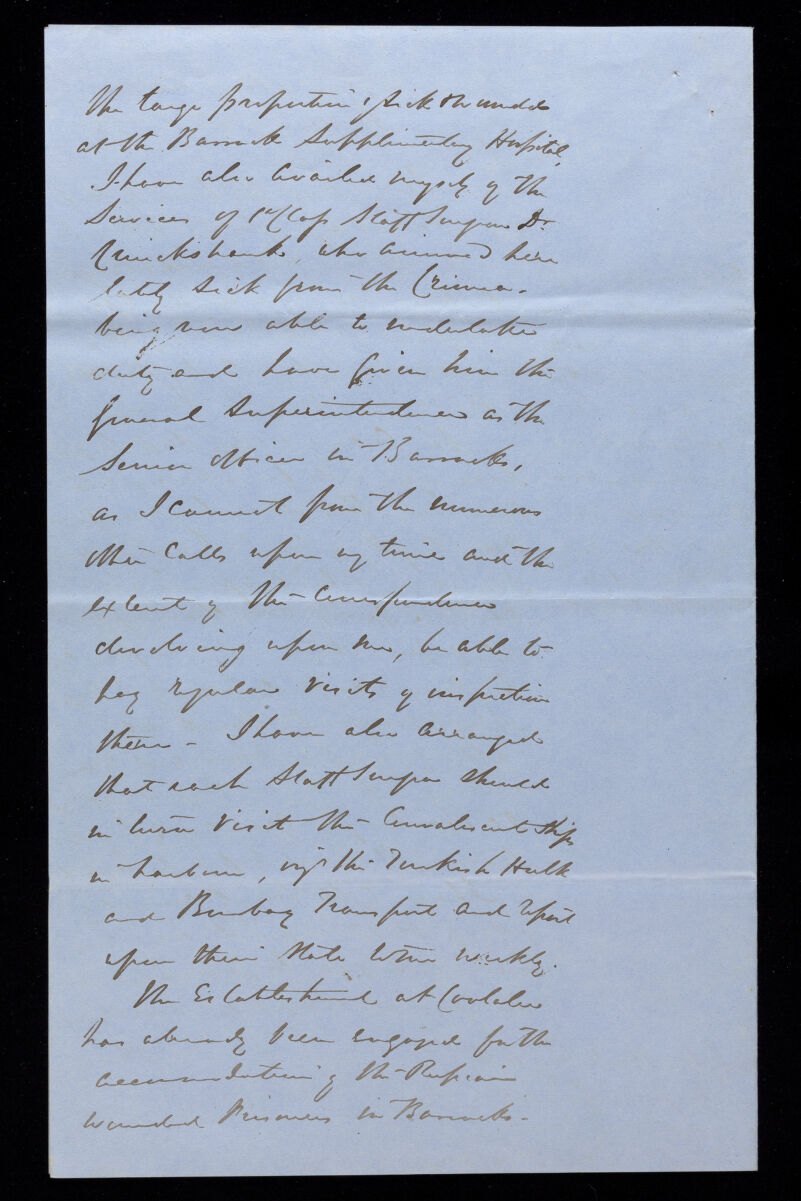 the large proportion of sick & wounded
at the Barrack Supplimentary Hospital.
I have also availed myself of the
Services of 1st Class Staff Surgeon Dr.
Cruickshank, who arrived here
lately sick from the Crimea.
being now able to undertake
duty and have given him the
general Superintendence as the
Senior Officer in Barracks,
as I cannot from the numerous
other calls upon my time and the
extent of the Correspondence
devolving upon me, be able to
pay regular visits of inspection
there - I have also arranged
that each Staff Surgeon should
in turn visit the Convalescent Ships
in harbour, viz the Turkish Hulk
and Bombay Transport and report
upon their state weekly.
The Establishment at Coolalee
has already been engaged for the
accommodation of the Russian
wounded Prisoners in Barracks.